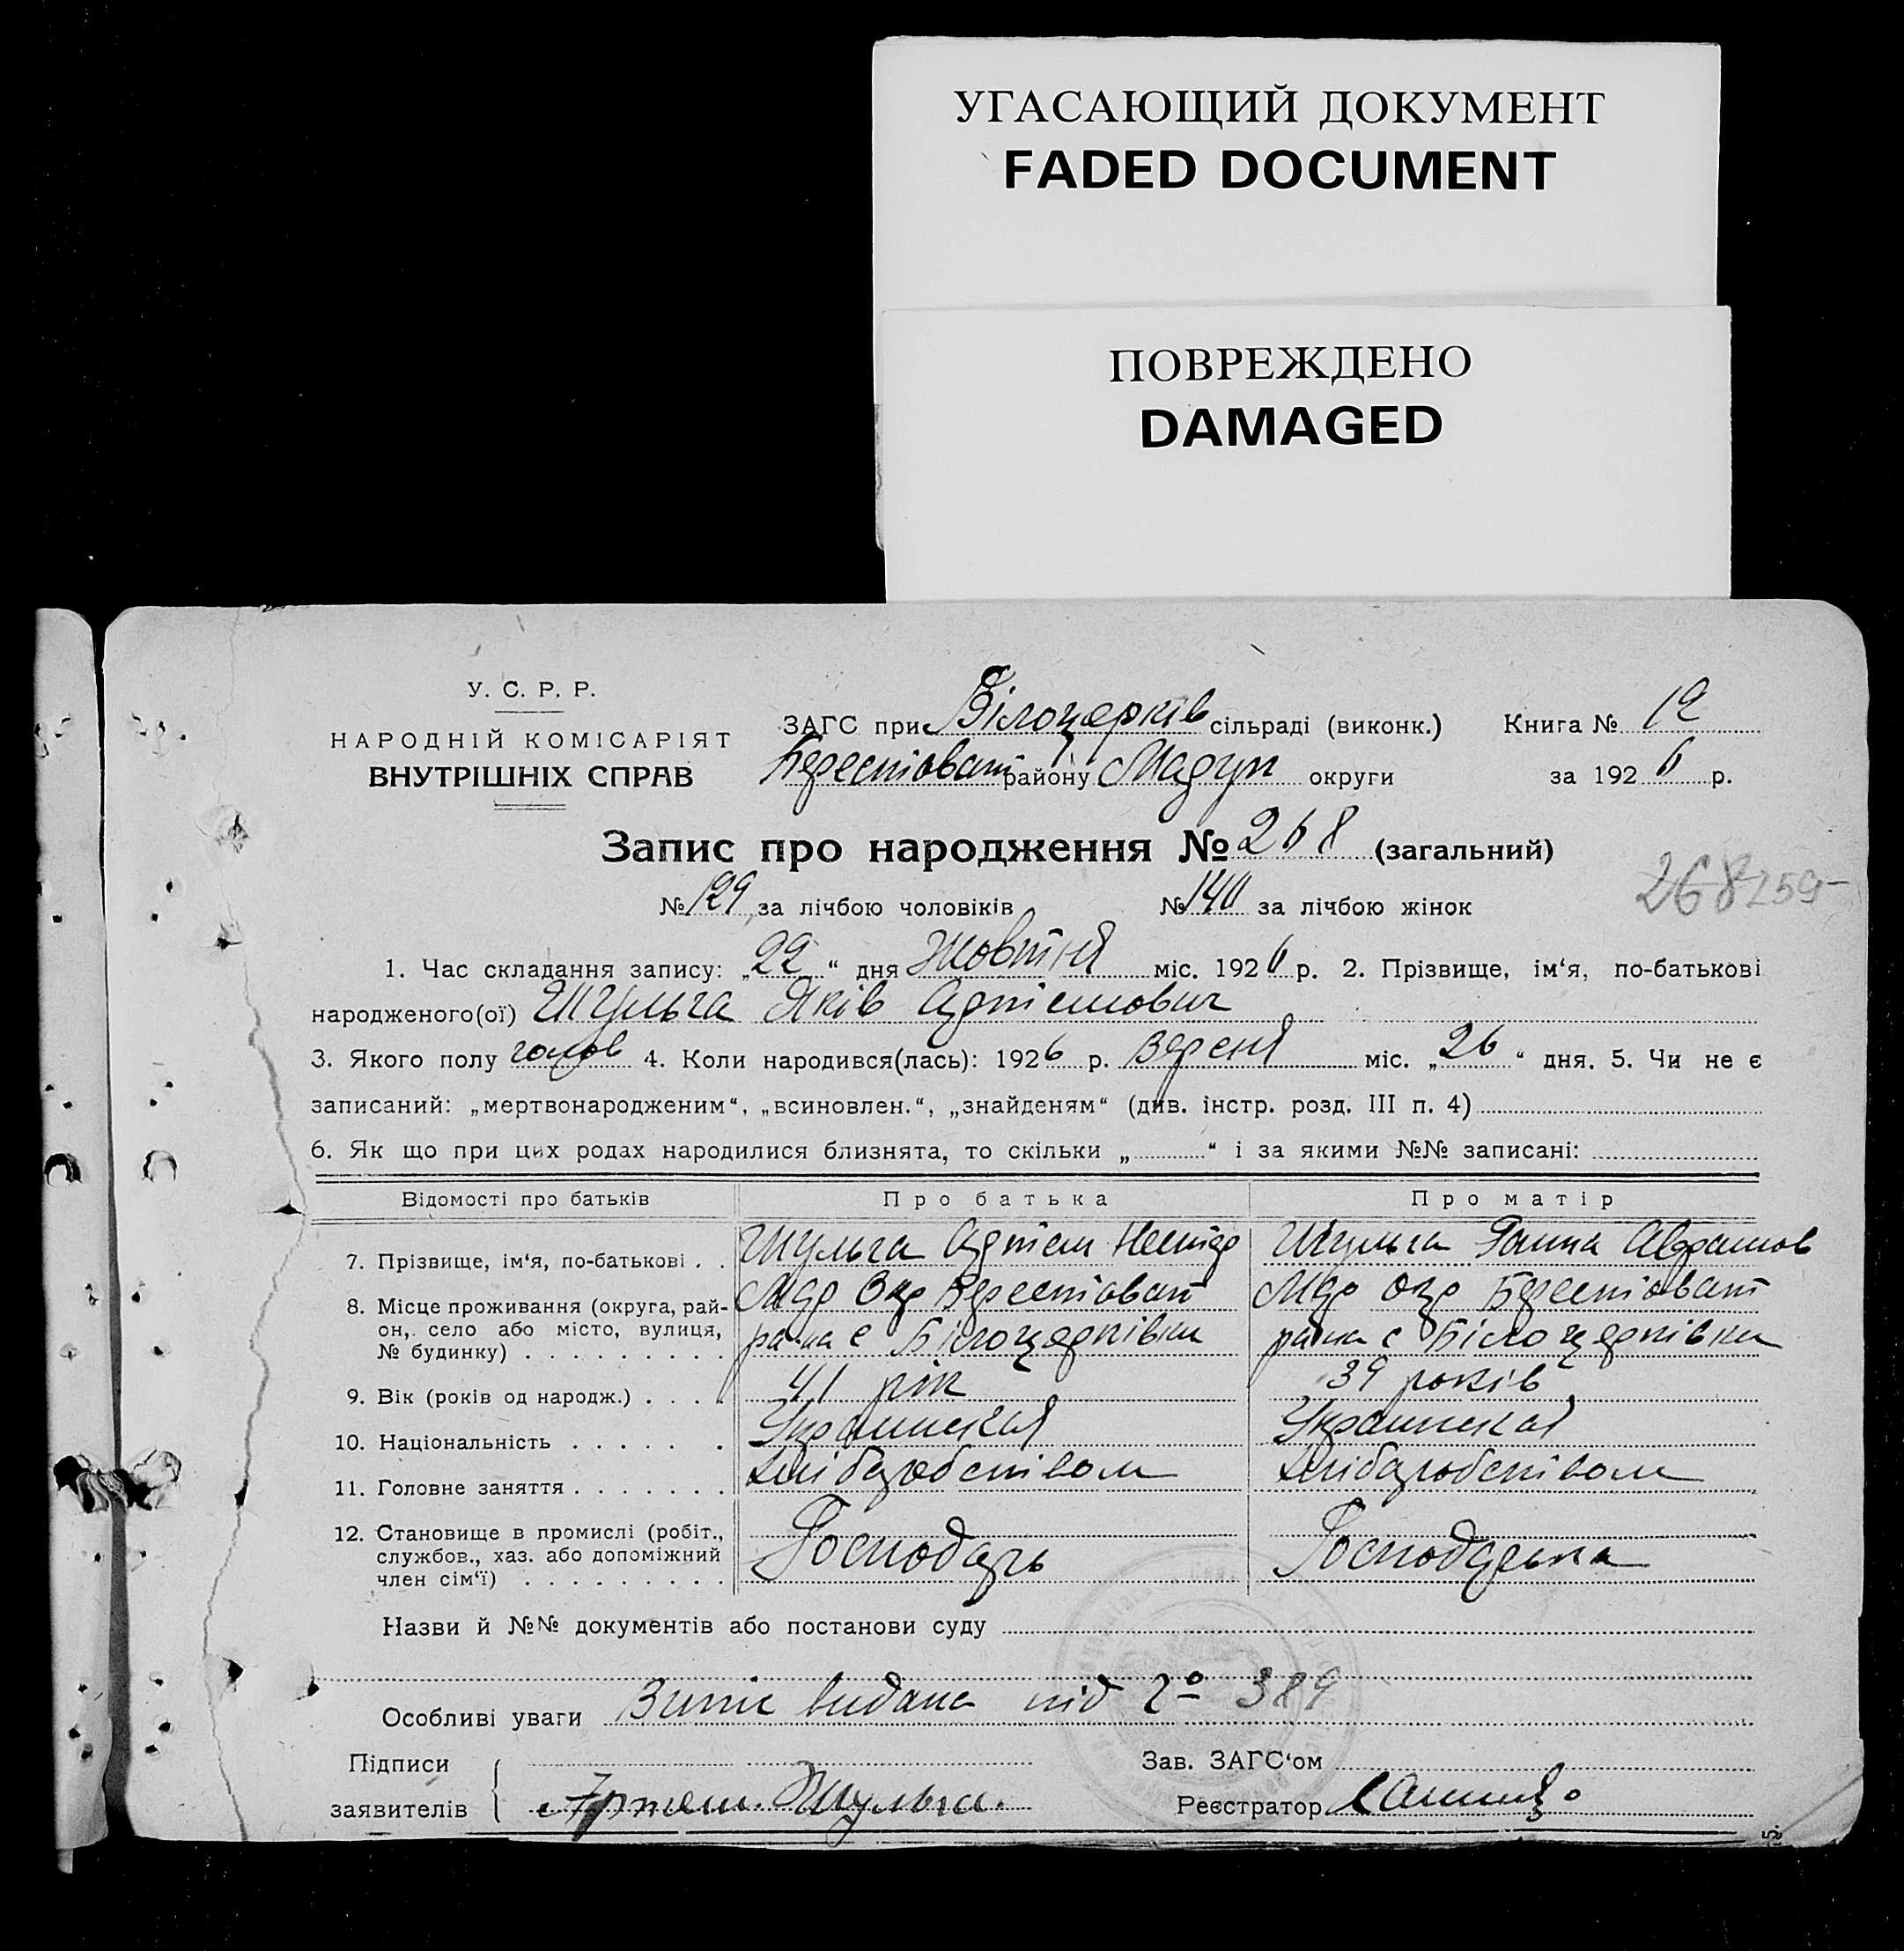 УГАСАЮЩИЙ ДОКУМЕНТ
FADED DOCUMENT
ПОВРЕЖДЕНО
DAMAGED
У. С. Р. Р.
НАРОДНІЙ КОМІСАРІЯТ
ВНУТРІШНІХ СПРАВ
ЗАГС при Білоцерків сільраді (виконк.) Книга № 12
Берестоват району Мариуп округи за 1926 р.
Запис про народження № 268 (загальний)
№ 129 за лічбою чоловіків № 140 за лічбою жінок
268 259
1. Час складання запису: „22“ дня Жовтня міс. 1926 р. 2. Прізвище, ім‘я, по-батькові
народженого(ої) Шульга Яків Артёмович
3. Якого полу 4. Коли народився(лась): 1926 р. Вересня міс. „26“ дня. 5. Чи не є
записаний: „мертвонародженим“, „всиновлен.“, „знайденям“ (див. інстр. розд. III п. 4)
6. Як що при цих родах народилися близнята, то скільки „ “ і за якими №№ записані:
Відомості про батьків Про батька Про матір
7. Прізвище, ім‘я, по-батькові . . Шульга Артём Нестер Шульга Ганна Аврамов
8. Місце проживання (округа, рай- Мар Окр Берестоват Мар Окр Берестоват
он, село або місто, вулиця, району с Білоцерківки району с Білоцерківки
№ будинку) . . . . . . . . .
9. Вік (років од народж.) . . . . 41 рік 39 років
10. Національність . . . . . . Украинская Украинская
11. Головне заняття . . . . . . . хліборобством хліборобством
12. Становище в промислі (робіт.,
службов., хаз. або допоміжний Господарь Господарька
член сім‘ї) . . . . . . . . .
Назви й №№ документів або постанови суду
Особливі уваги видана під № 389
Підписи Зав. ЗАГС‘ом
заявителів Артем. Шульга. Реєстратор